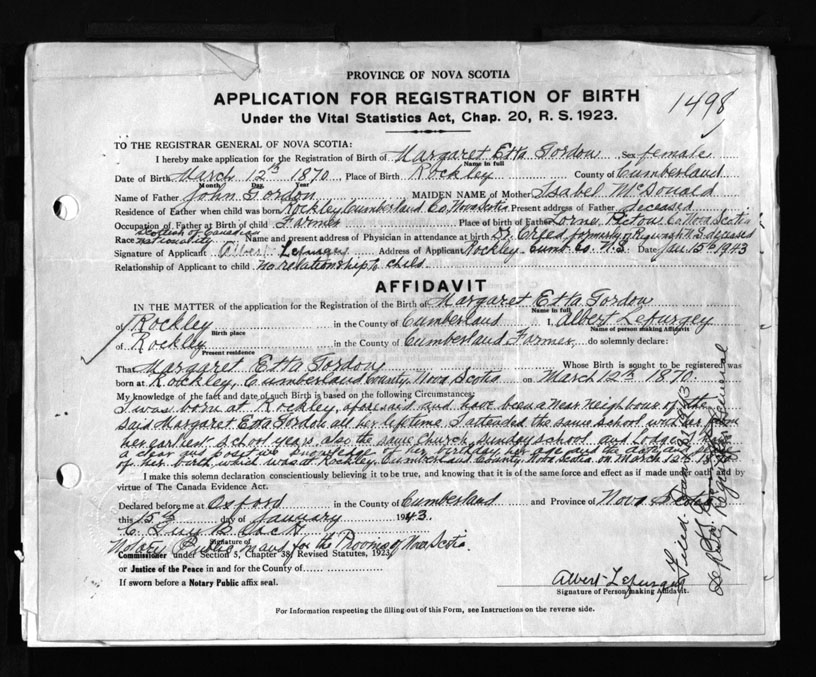 PROVINCE OF NOVA SCOTIA
APPLICATION FOR REGISTRATION OF BIRTH
1498
Under the Vital Statistics Act, Chap. 20, R. S. 1923.
TO THE REGISTRAR GENERAL OF NOVA SCOTIA:
I hereby make application for the Registration of Birth of Margaret Etta Gordon Sex female
Name in full
Date of Birth March 12th 1870 Place of Birth Rockley County of Cumberland
Month Day Year
Name of Father John Gordon MAIDEN NAME of Mother Isabel McDonald
Residence of Father when child was born Rockley Cumberland Co, Nova Scotia Present address of Father Deceased
Occupation of Father at Birth of child Farmer Place of birth of Father Lorne, Pictou Co Nova Scotia
Race nationality Scottish & Canadian Name and present address of Physician in attendance at birth Dr. Creed, formerly of Pugwash N.S. deceased
Signature of Applicant Albert Lefurgey Address of Applicant Rockley Cumb. Co. N.S. Date Jan. 15th 1943
Relationship of Applicant to child no relationship to child
AFFIDAVIT
IN THE MATTER of the application for the Registration of the Birth of Margaret Etta Gordon
Name in full
of Rockley in the County of Cumberland I, Albert Lefurgey
Birth place Name of person making Affidavit
of Rockley in the County of Cumberland Farmer do solemnly declare:
Present residence
That Margaret Etta Gordon Whose Birth is sought to be registered was
born at Rockley, Cumberland County, Nova Scotia on March 12th 1870
My knowledge of the fact and date of such Birth is based on the following Circumstances:
I was born at Rockley, aforesaid and have been a near neighbour of the
said Margaret Etta Gordon all her lifetime I attended the same school with her from
her earliest school years, also the same church, Sunday school and Lodge, I have
a clear and positive knowledge of her birthday her age and the date and place
of her birth which was at Rockley, Cumberland County, Nova Scotia on March 12th 1870
I make this solemn declaration conscientiously believing it to be true, and knowing that it is of the same force and effect as if made under oath and by
virtue of The Canada Evidence Act.
Declared before me at Oxford in the County of Cumberland and Province of Nova Scotia
this 15th day of January 1943.
Signature of
Notary Public in and for the Province of Nova Scotia
Commissioner under Section 5, Chapter 38, Revised Statutes, 1923
or Justice of the Peace in and for the County of
If sworn before a Notary Public affix seal.
Albert Lefurgey
Signature of Person making Affidavit.
For Information respecting the filling out of this Form, see Instructions on the reverse side.
Filed 1943
Deputy Registrar General